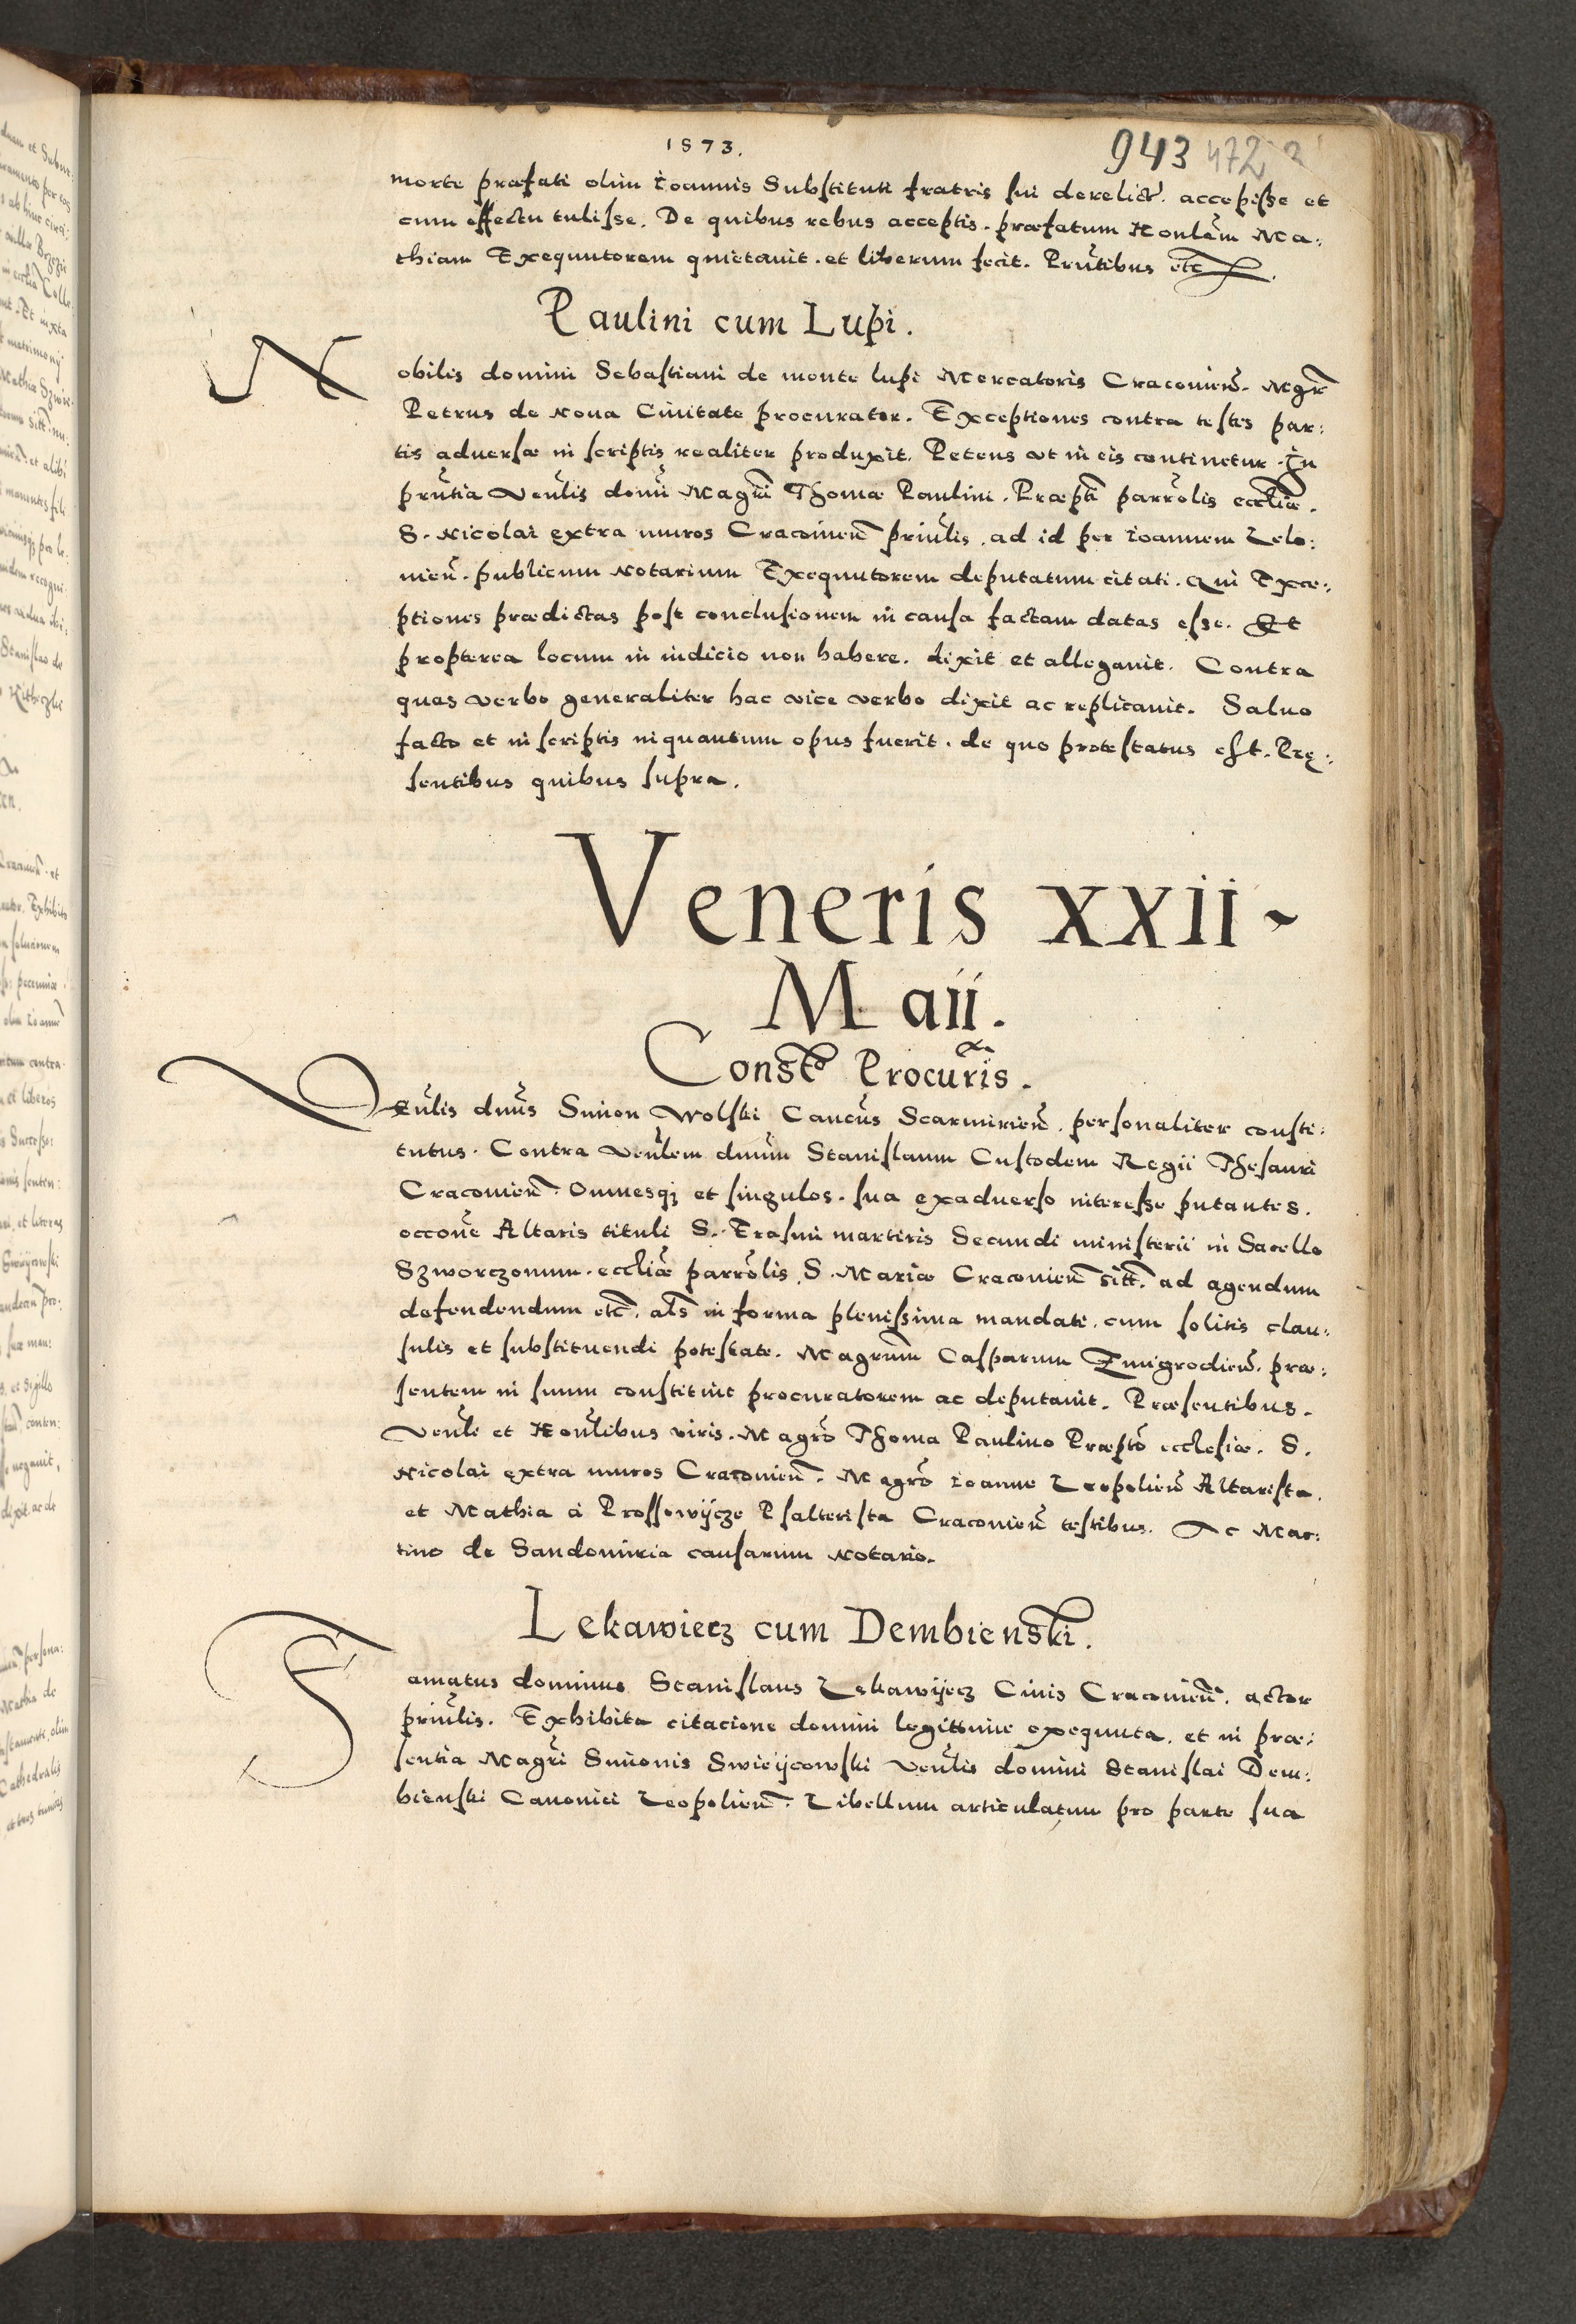 1573.
943 472
morte præfati olim Ioannis Substituti fratris sui derelict. accepisse et
cum effectu tulisse. De quibus rebus acceptis. præfatum Honlem Ma:
thiam Exequutorem quietauit. et liberum fecit. Prntibus etc
Paulini cum Lupi.
Nobilis domini Sebastiani de monte lupi Mercatoris Cracouien. Mgr
Petrus de Noua Ciuitate procurator. Exceptiones contra testes par:
tis aduersæ in scriptis realiter produxit. Petens ut in eis continetur. In
prntia Venlis domi Magri Thomæ Paulini. Præpti parrolis eccliæ.
S. Nicolai extra muros Cracouien prinlis. ad id per Ioannem Zelo:
nien. publicum Notarium Exequutorem deputatum citati. Qui Exce:
ptiones prædictas post conclusionem in causa factam datas esse. Et
propterea locum in iudicio non habere. dixit et allegauit. Contra
quas verbo generaliter hac vice verbo dixit ac replicauit. Saluo
facto et in scriptis inquantum opus fuerit. de quo protestatus est. Præ:
sentibus quibus supra.
Veneris xxii~
Maii.
Consto Procuris.
Venlis dnus Simon Wolski Cancus Scarmirien. personaliter consti:
tutus. Contra Venlem dnum Stanislaum Custodem Regii Thesauri
Cracouien. Omnesq; et singulos. sua exaduerso interesse putantes.
occone Altaris tituli S. Erasmi martiris Secundi ministerii in Sacello
Szworczonum. eccliæ parrolis S. Mariæ Cracouien sitt. ad agendum
defendendum etc. als in forma plenissima mandati. cum solitis clau:
sulis et substituendi potestate. Magrum Casparum Zmigrodien. præ:
sentem in suum constituit procuratorem ac deputauit. Præsentibus.
Venli et Honlibus viris. Magro Thoma Paulino Præpto ecclesiæ. S.
Nicolai extra muros Cracouien. Magro Ioanne Leopolien Altarista.
et Mathia à Prossowijcze Psalterista Cracouien testibus. Ac Mar:
tino de Sandomiria causarum Notario.
Lekawiecz cum Dembienski.
Famatus dominus Stanislaus Lekawijecz Ciuis Cracouien. actor
prinlis. Exhibita citacione domini legittime exequuta. et in præ:
sentia Magri Simonis Swieijcowski Venlis domini Stanislai Dem:
bienski Canonici Leopolien. Libellum articulatum pro parte sua